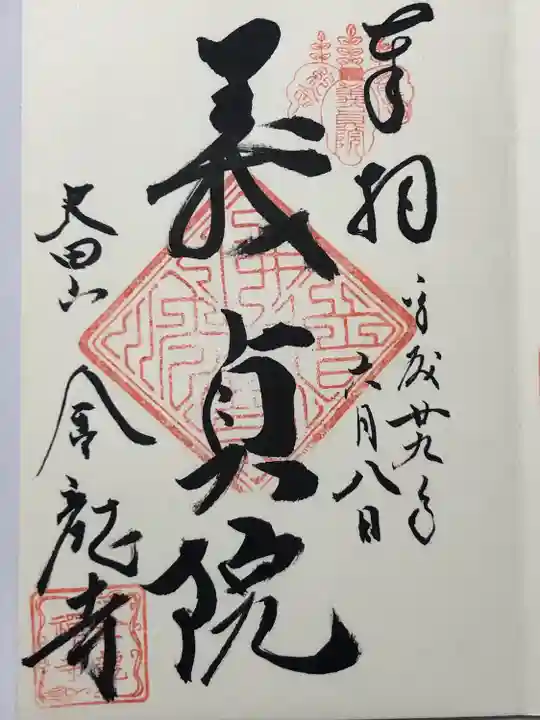 奉拝
平成廿九年
六月八日
義貞院
太田山
金龍寺